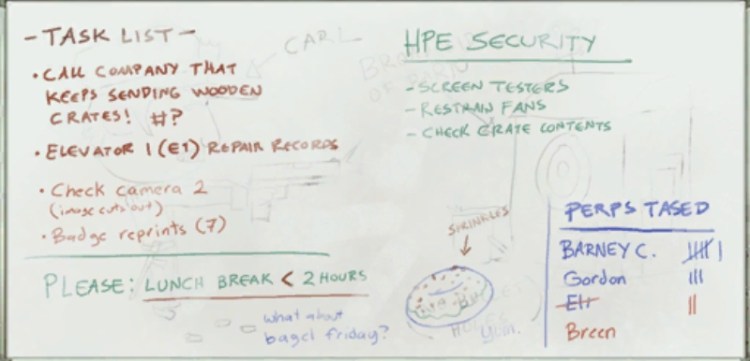 - TASK LIST -
• CALL COMPANY THAT
KEEPS SENDING WOODEN
CRATES! #?
• ELEVATOR 1 (E1) REPAIR RECORDS
• Check camera 2
(image cuts out)
• Badge reprints (7)
PLEASE: LUNCH BREAK < 2 HOURS
what about
bagel friday?
CARL
HPE SECURITY
- SCREEN TESTERS
- RESTRAIN FANS
- CHECK CRATE CONTENTS
SPRINKLES
PERPS TASED
BARNEY C.
Gordon
Eli
Breen